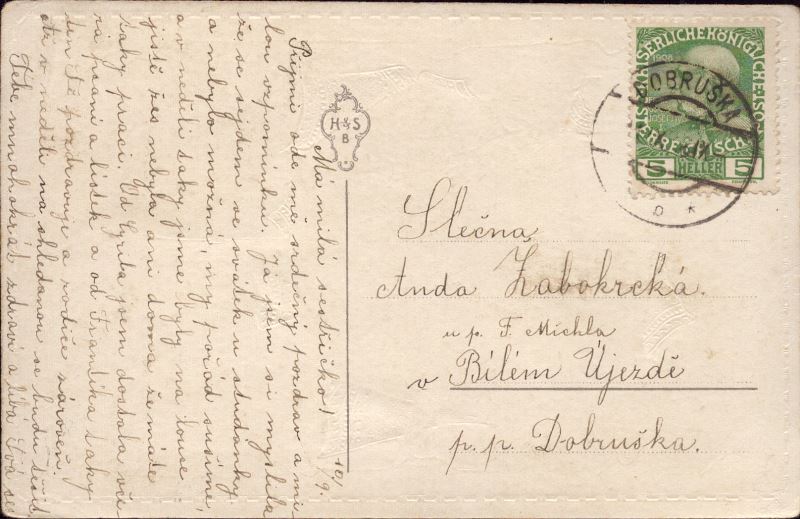 Má milá sestřičko! 10/9.
Přijmi ode mě srdečný pozdrav a mi
lou vzpomínku. Já jsem si myslila
že se sejdem ve svátek u studánky
a nebylo možná, my pořád sušíme,
a v neděli taky jsme byly na louce
jistě žes nebyla ani doma že máte
taky práci. Od Cyrila jsem dostala vče
ra psaní a lístek a od Frantíka taky
ten Tě pozdravuje a rodiče zároveň.
až v neděli na shledanou se budu těšit
Tebe mnohokrát zdraví a líbá Tvá se
H & S
B
KAISERLICHE KÖNIGLICHE
ÖSTERREICHISCHE
1908
5 HELLER 5
DOBRUŠKA
Slečna
Anda Žabokrcká.
u p. F. Michla
v Bílém Újezdě
p. p. Dobruška.